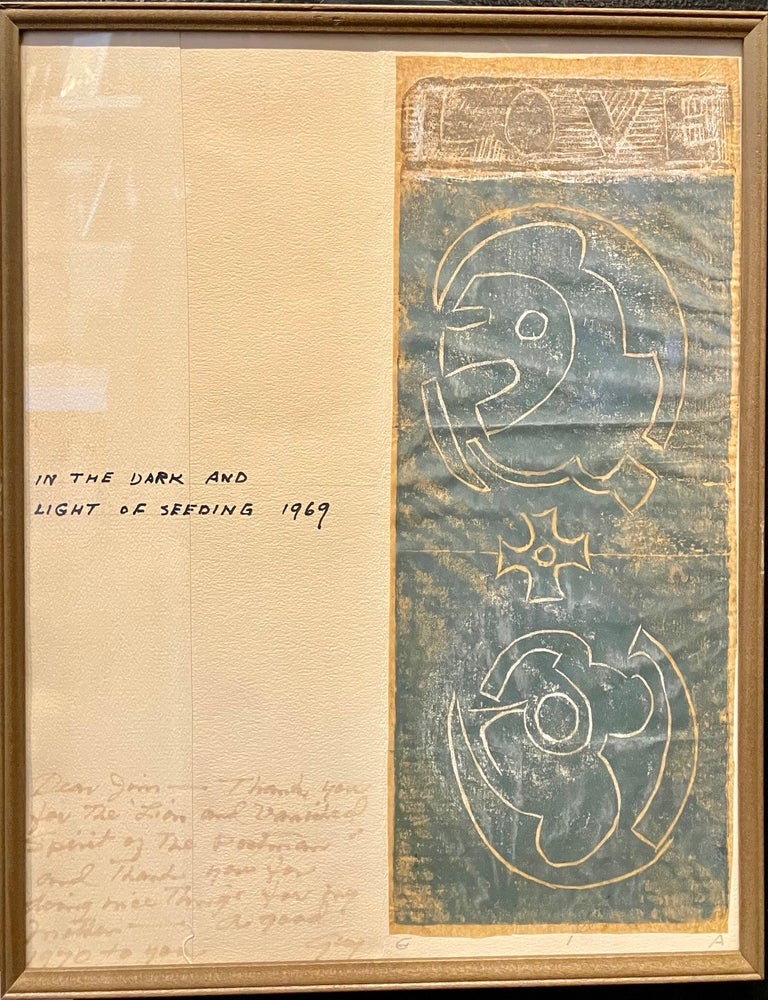 LOVE
IN THE DARK AND
LIGHT OF SEEDING 1969
Dear Jim — Thank you
for The Lion and
Spirit of The Postman
and Thank you for
doing nice Things for my
— A good
1970 to you
G I A